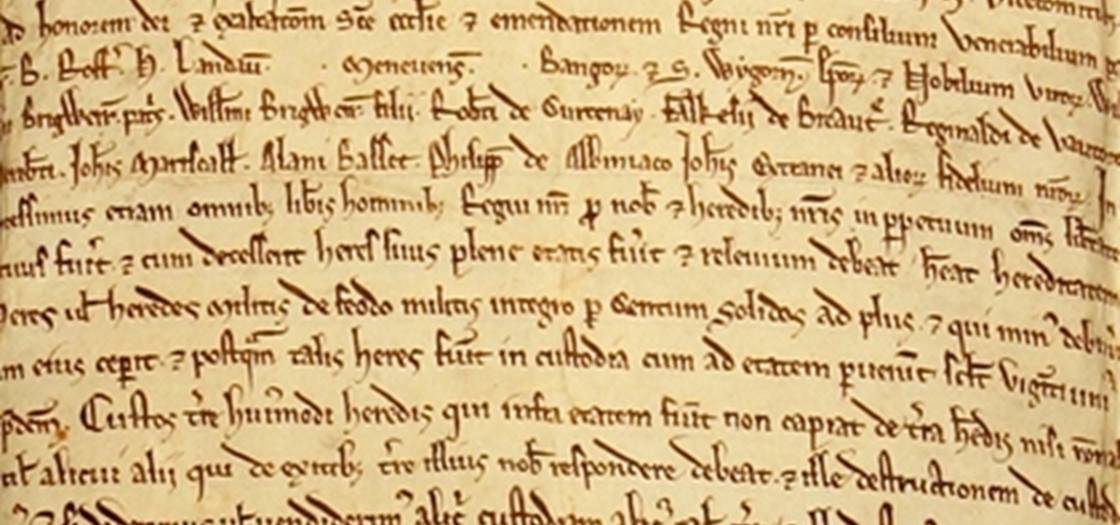 ad honorem dei ⁊ exaltatōm Scē ecctie ⁊ emendationem Regni nr̄i ꝑ consilium venerabilium
B. Roff. H. Landau̅. Meneuens̄. Bangoꝝ. ⁊ S. Wigorn̄. Ep̄oꝝ ⁊ Nobilium viroꝝ.
Brigwerr̄ pris. Will̄mi Brigwerr̄ filii. Rob̄ti de Curtenay. Falkesii de Breaut̄. Reginaldi de Vautort
Joh̄is Marscall̄. Alani Basset. Philipp̄ de Albiniaco Joh̄is Extranei ⁊ alioꝝ fidelium nr̄oꝝ.
cessimus etiam omnib; lib̄is hominib; Regni nr̄i ꝓ nob̄ ⁊ heredib; nr̄is in ꝑpetuum om̄s
fu̅it ⁊ cum decesserit heres suus plene etatis fu̅it ⁊ releuium debeat h̄eat hereditatem
heres ul̄ heredes militis de feodo militis integro ꝑ Centum solidos ad plus. ⁊ qui min̄ debu
m eius ceꝑit. ⁊ postq̄m talis heres fu̅it in custodia cum ad etatem ꝑuen̅it sct̄ viginti uni
Custos t̄re hui̅modi heredis qui infra etatem fu̅it non capiat de t̄ra h̄edis nisi
ul̄ alicui alii qui de exitib; t̄re illius nob̄ respondere debeat. ⁊ ille destructionem de cust